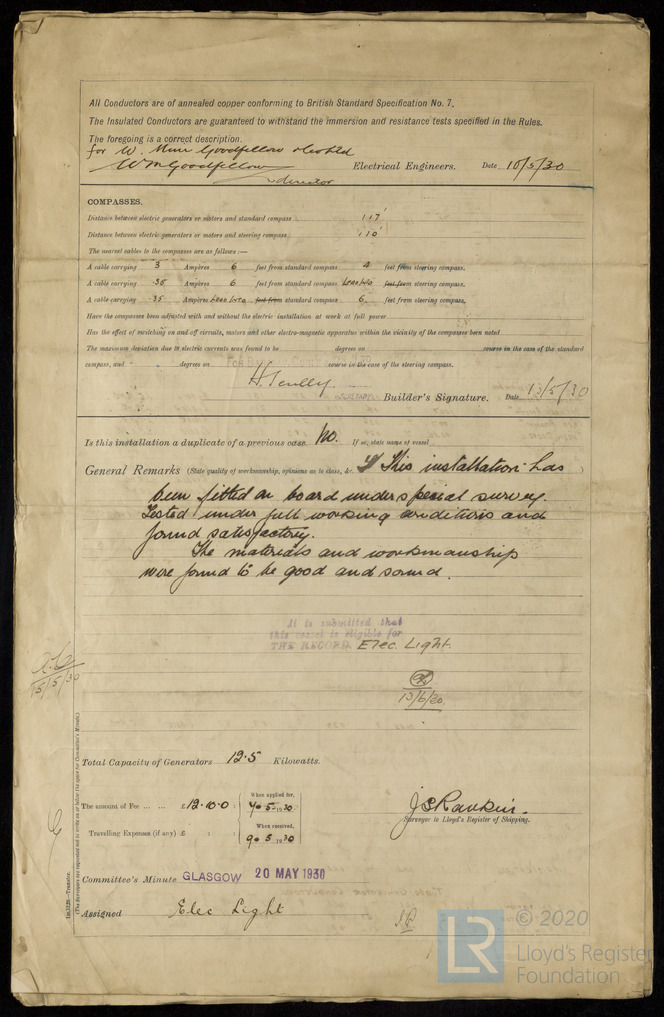 All Conductors are of annealed copper conforming to British Standard Specification No. 7.
The Insulated Conductors are guaranteed to withstand the immersion and resistance tests specified in the Rules.
The foregoing is a correct description.
for W. Muir Goodfellow
Wm Goodfellow Electrical Engineers. Date 10/5/30
director
COMPASSES.
Distance between electric generators or motors and standard compass 117'
Distance between electric generators or motors and steering compass 110'
The nearest cables to the compasses are as follows:—
A cable carrying 3 Ampères 6 feet from standard compass 4 feet from steering compass.
A cable carrying .35 Ampères 6 feet from standard compass lead into feet from steering compass.
A cable carrying .35 Ampères lead into feet from standard compass 6 feet from steering compass.
Have the compasses been adjusted with and without the electric installation at work at full power
Has the effect of switching on and off circuits, motors and other electro-magnetic apparatus within the vicinity of the compasses been noted
The maximum deviation due to electric currents was found to be degrees on course in the case of the standard
compass, and degrees on course in the case of the steering compass.
H. Scully.
SECRETARY
Builder's Signature. Date 13/5/30
Is this installation a duplicate of a previous case No. If so, state name of vessel
General Remarks (State quality of workmanship, opinions as to class, &c. This installation has
been fitted on board under special survey.
Tested under full working conditions and
found satisfactory.
The materials and workmanship
were found to be good and sound.
It is submitted that
this vessel is eligible for
THE RECORD. Elec. Light.
15/5/30
13/6/30.
Total Capacity of Generators 12.5 Kilowatts.
The amount of Fee ... ... £12.10.0
When applied for,
7.5.1930
Travelling Expenses (if any) £ : :
When received,
9.5.1930
J S Rankin.
Surveyor to Lloyd's Register of Shipping.
Committee's Minute GLASGOW 20 MAY 1930
Assigned Elec Light
(The Surveyors are requested not to write on or below the space for Committee's Minute.)
LR
© 2020
Lloyd's Register
Foundation